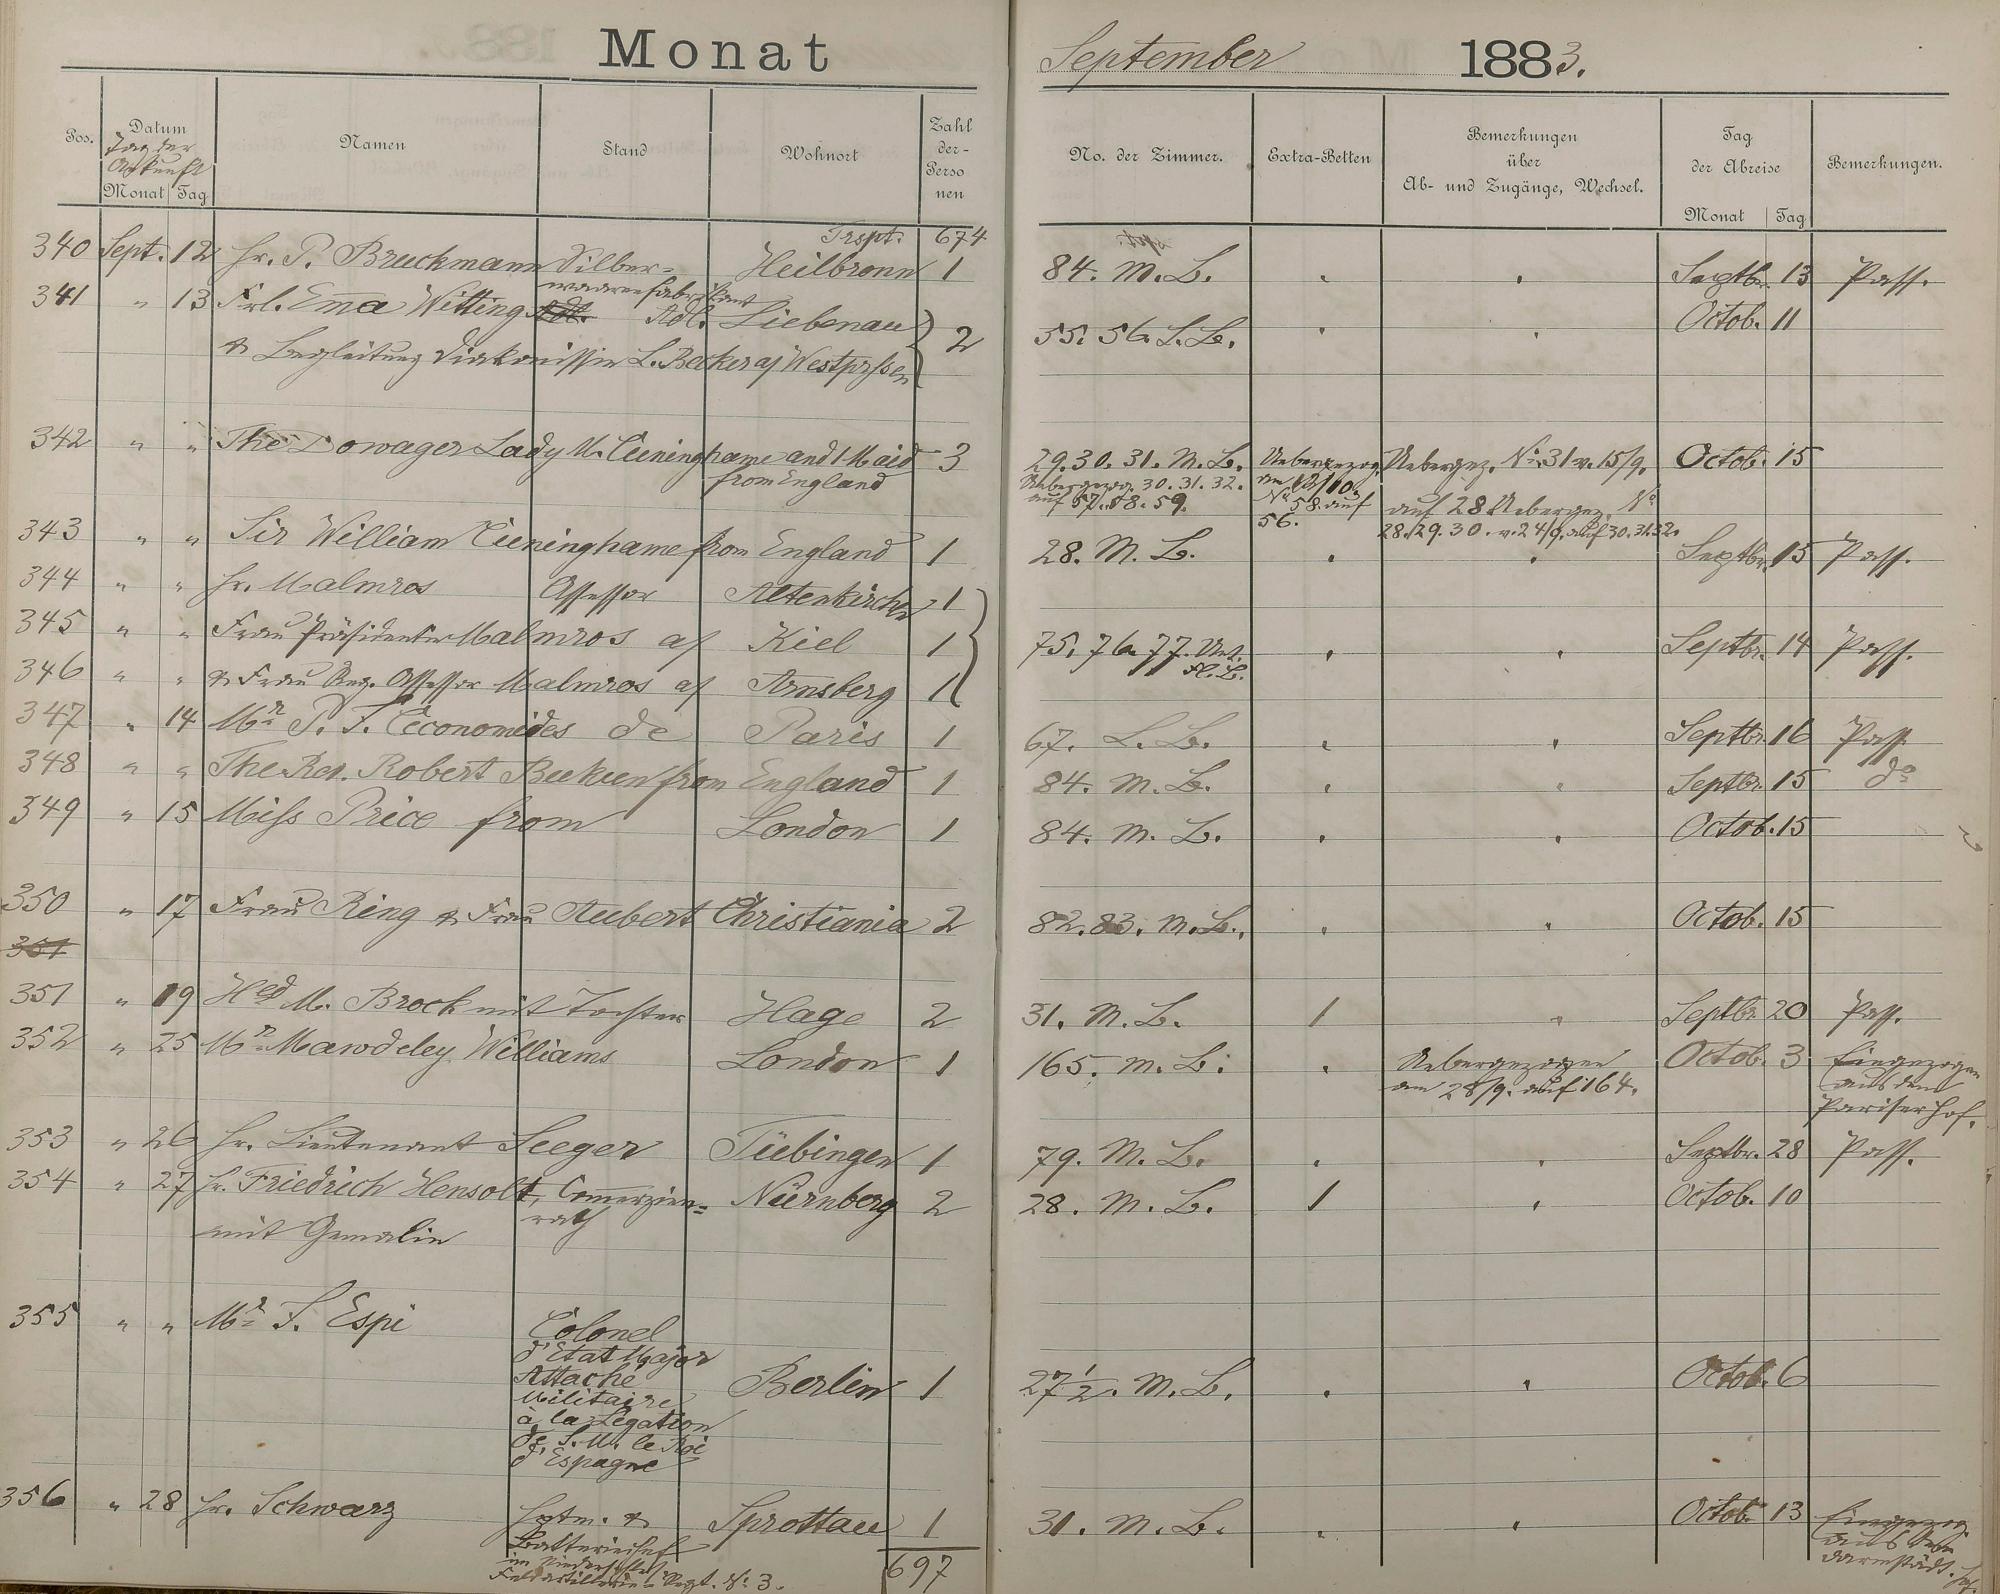 Monat September 1883.
Pos. Datum Namen Stand Wohnort Zahl der Personen No. der Zimmer. Extra-Betten Bemerkungen über Ab- und Zugänge, Wechsel. Tag der Abreise Bemerkungen.
Tag der Ankunft
Monat Tag Monat Tag
Trspt. 674
340 Sept. 12 Hr. P. Bruckmann Silber= Heilbronn 1 84. M. L. " " Septbr. 13 Pass.
waarenfabrikant
341 " 13 Frl. Em̄a Witting Adl. Liebenau 2 55. 56. L. L. " " Octob. 11
& Begleitung Diakonissin L. Becker a/ Westprssen
342 " " The Dowager Lady M. Cuninghame and 1 Maid 3 29. 30. 31. M. L. Uebergezog. Uebergez. No. 31 v. 15/9. Octob. 15
from England Uebergezog. 30. 31. 32. am 12/10
auf 57. 58. 59. No. 58. auf auf 28 Uebergez. No.
56. 28. 29. 30. v. 24/9. auf 30. 31. 32.
343 " " Sir William Cuninghame from England 1 28. M. L. " " Septbr. 15 Pass.
344 " " Hr. Malmros Assessor Altenkirchen 1
345 " " Frau Präsidentin Malmros a/ Kiel 1 75. 76. 77. " " Septbr. 14 Pass.
346 " " & Frau Reg. Assessor Malmros a/ Arnsberg 1
347 " 14 Mr. P. J. Economides de Paris 1 67. L. L. " " Septbr. 16 Pass.
348 " " The Rev. Robert from England 1 84. M. L. " " Septbr. 15 do
349 " 15 Miss Price from London 1 84. M. L. " " Octob. 15
350 " 17 Frau Ring & Frau Aubert Christiania 2 82. 83. M. L. " " Octob. 15
351
351 " 19 M. Brock mit Tochter Hage 2 31. M. L. 1 " Septbr. 20 Pass.
352 " 25 Mr. Mawdeley Williams London 1 165. M. L. " Uebergezogen Octob. 3 Eingezogen
am 28/9. auf 164. aus dem
Pariser Hof.
353 " 26 Hr. Lieutenant Seeger Tübingen 1 79. M. L. " " Septbr. 28 Pass.
354 " 27 Hr. Friedrich Hensolt, Com̄erzien= Nürnberg 2 28. M. L. 1 " Octob. 10
mit Gemalin rath
355 " " Mr. J. Espi Colonel
d'Etat Major
Attaché Berlin 1 27 1/2. M. L. " " Octob. 6
Militaire
à la Légation
de S. M. le Roi
d'Espagne
356 " 28 Hr. Schwarz Hptm. & Sprottau 1 31. M. L. " " Octob. 13 Eingezog.
Batteriechef aus
im Niederschles. Darmstädt. Hof.
Feldartillerie-Regt. No. 3.
697